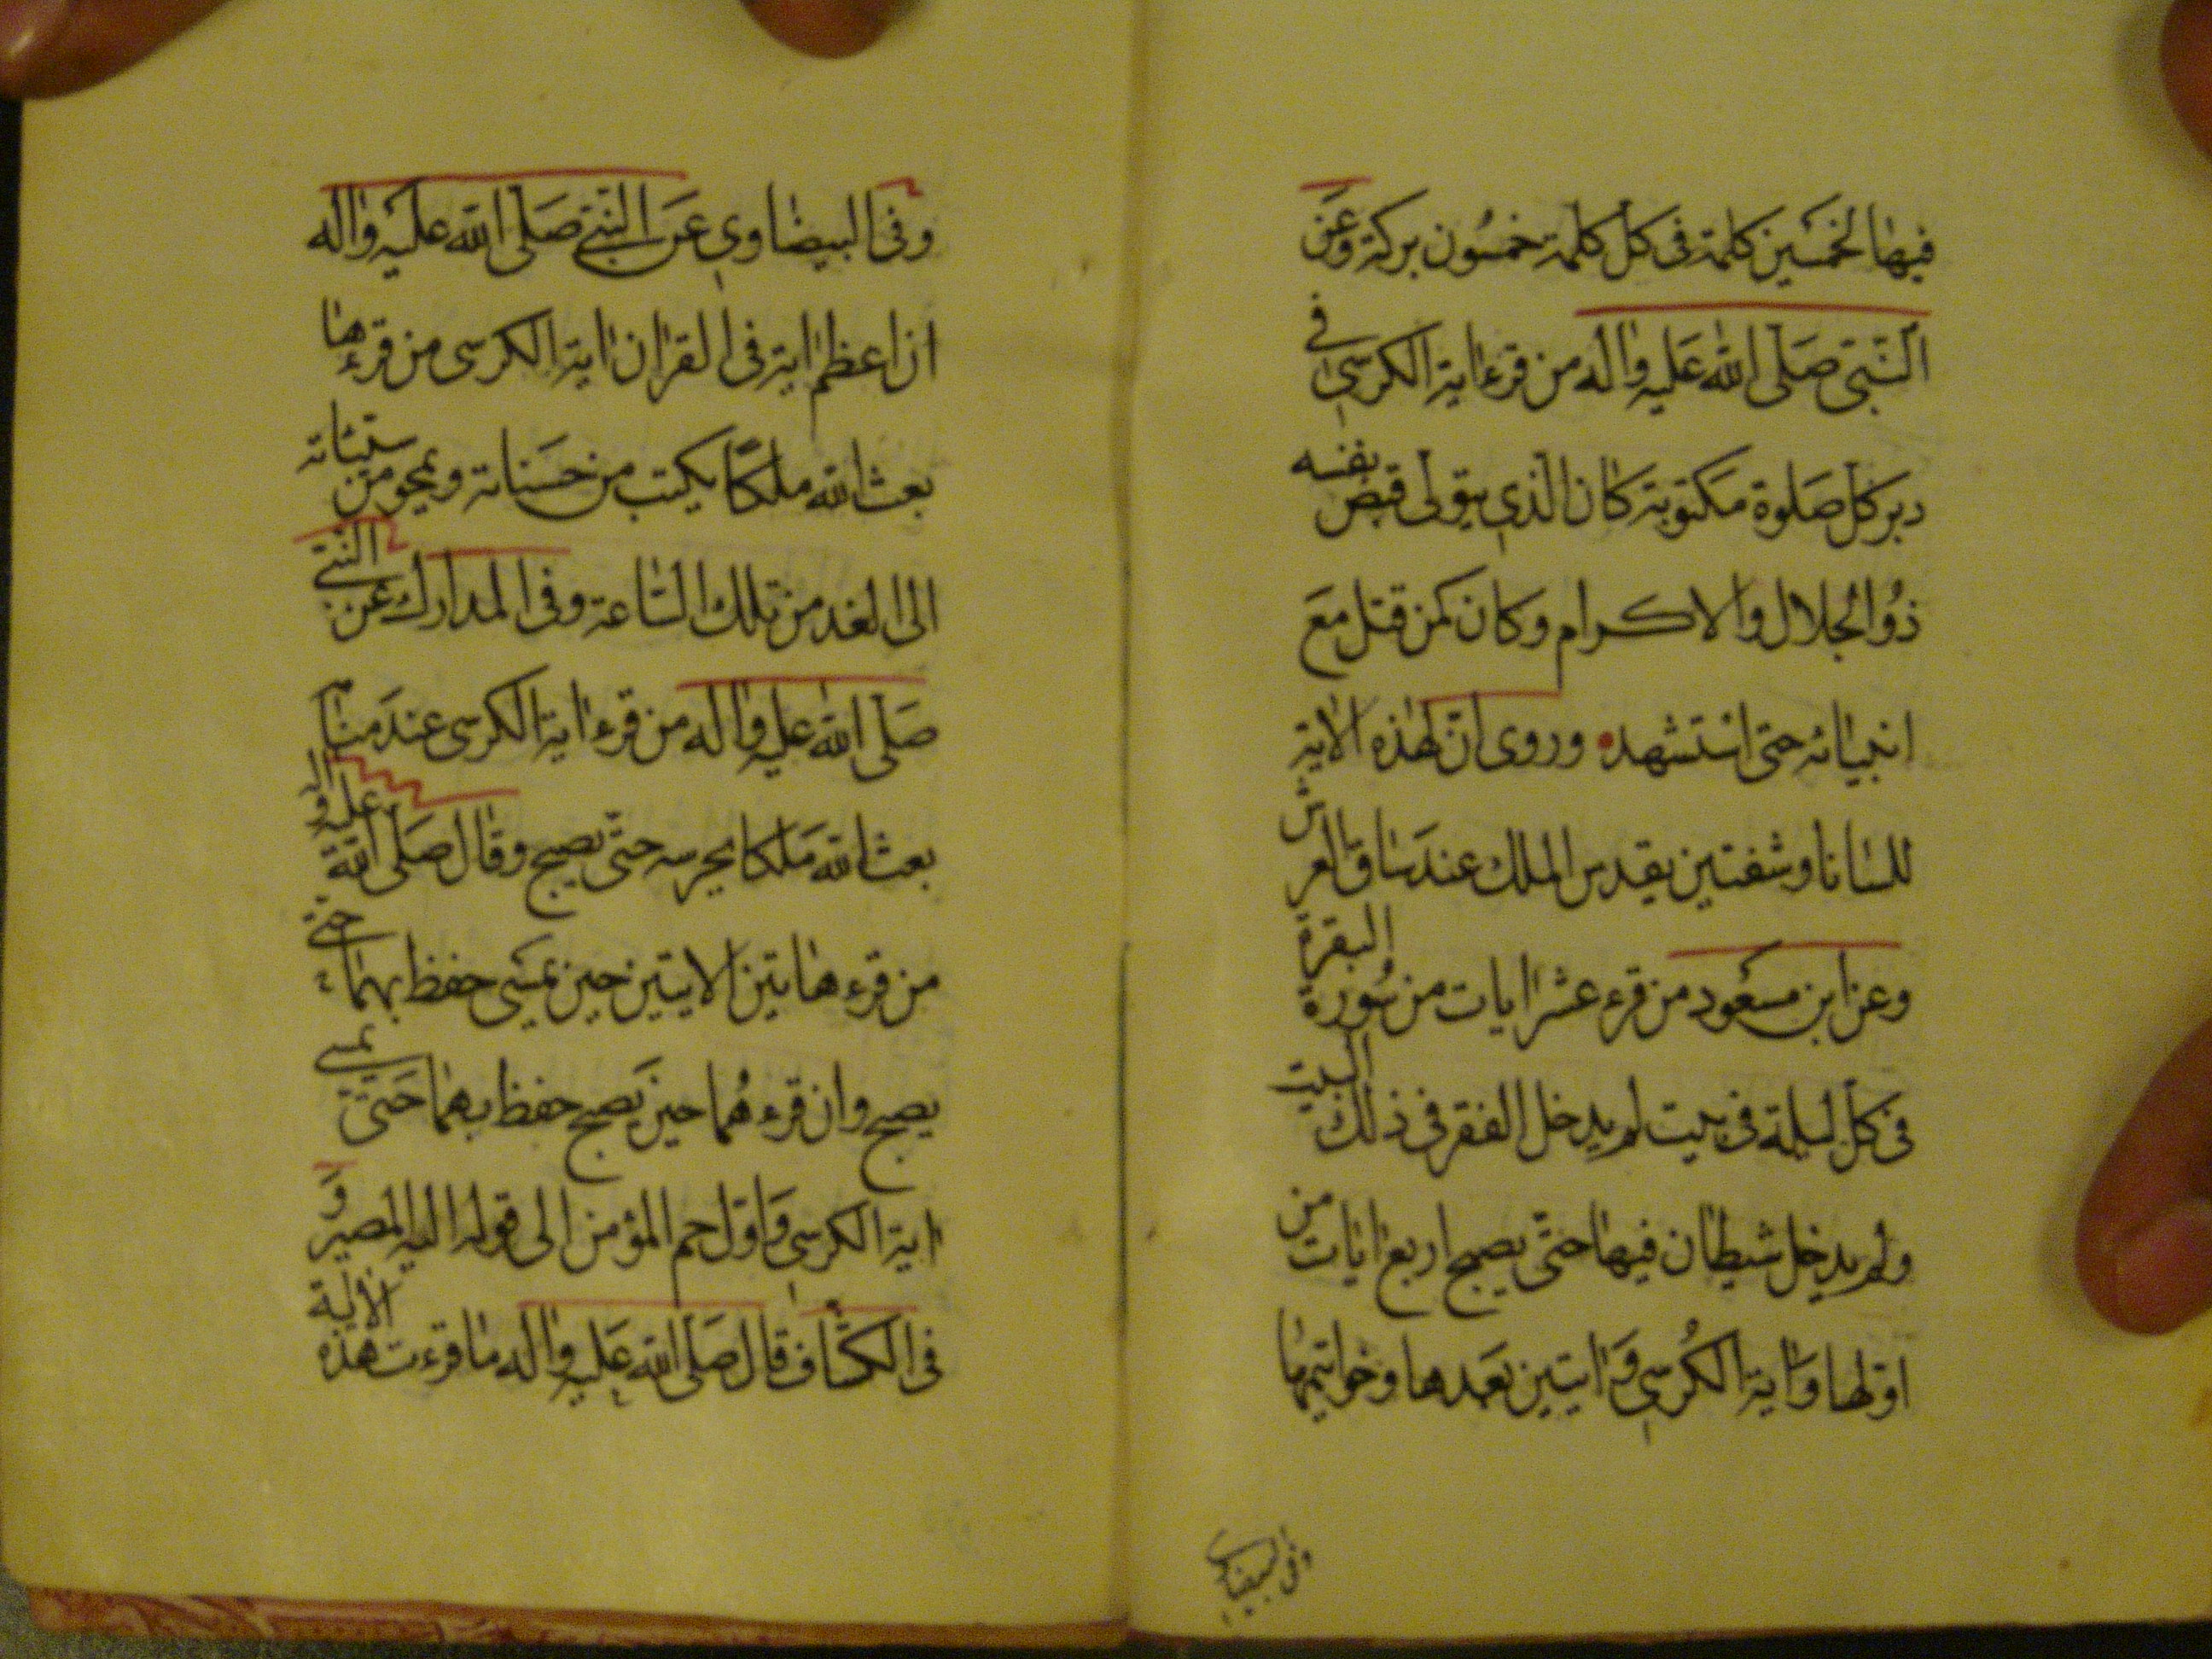 فيها لخمسين كلمة فى كل كلمة خمسون بركة وعن
النبى صلى الله عليه واله من قرء اية الكرسى فى
دبر كل صلوة مكتوبة كان الذى يتولى قبض نفسه
ذو الجلال والاكرام وكان كمن قتل مع
انبيائه حتى استشهد وروى ان لهذه الاية
للسانا وشفتين يقدس الملك عند ساق العرش
وعن ابن مسعود من قرء عشر ايات من سورة البقرة
فى كل ليلة فى بيت لم يدخل الفقر فى ذلك البيت
ولم يدخل شيطان فيها حتى يصبح اربع ايات من
اولها واية الكرسى وايتين بعدها وخواتيمها
وفى البيضاوى
وفى البيضاوى عن النبى صلى الله عليه واله
ان اعظم اية فى القران اية الكرسى من قرءها
بعث الله ملكا يكتب من حسناته ويمحو من سيئاته
الى الغد من تلك الساعة وفى المدارك عن النبى
صلى الله عليه واله من قرء اية الكرسى عند منامه
بعث الله ملكا يحرسه حتى يصبح وقال صلى الله عليه واله
من قرء هاتين الايتين حين يمسى حفظ بهما حتى
يصبح وان قرءهما حين يصبح حفظ بهما حتى يمسى
اية الكرسى واول حم المؤمن الى قوله اليه المصير و
فى الكشاف قال صلى الله عليه واله ما قرءت هذه الاية